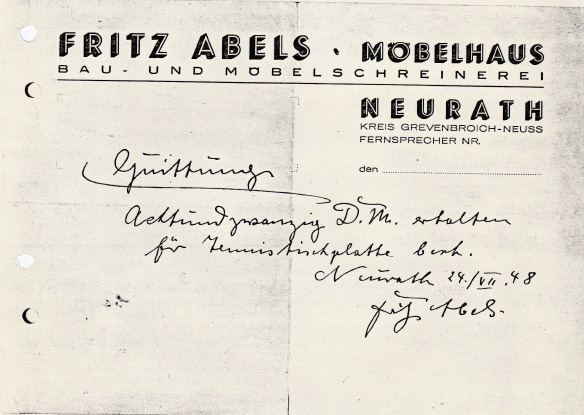 FRITZ ABELS · MÖBELHAUS
BAU- UND MÖBELSCHREINEREI
NEURATH
KREIS GREVENBROICH-NEUSS
FERNSPRECHER NR.
den
Quittung
Achtundzwanzig D.M. erhalten
für Tennistischplatte
Neurath 24./VII.48
Fritz Abels.